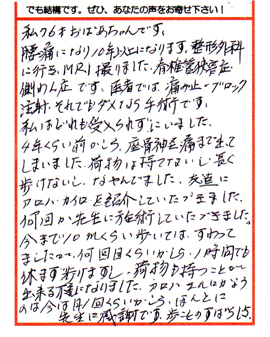 でも結構です。ぜひ、あなたの声をお寄せ下さい！
私76才おばあちゃんです。
腰痛になり10年以上になります。整形外科
に行き、MRI撮りました。脊椎管狭窄症
側わん症です。医者では、痛み止ブロック
注射、それでもダメなら手術です。
私はどれも受け入れずにいました。
4年くらい前から、座骨神経痛まで
しまいました。荷物は持てないし長く
歩けないし、なやんでました。友達に
カロバカイロを紹介していただきました。
何回か先生に施術していただきました。
今まで10mくらい歩いては、すわって
ましたが、何回目くらいかしら、1時間でも
休まず歩けますし、荷物も持つことが
出来る様になりました。カロバ
のは今は月1回くらいかしら、ほんとに
先生に感謝です。歩こものすばらしさ